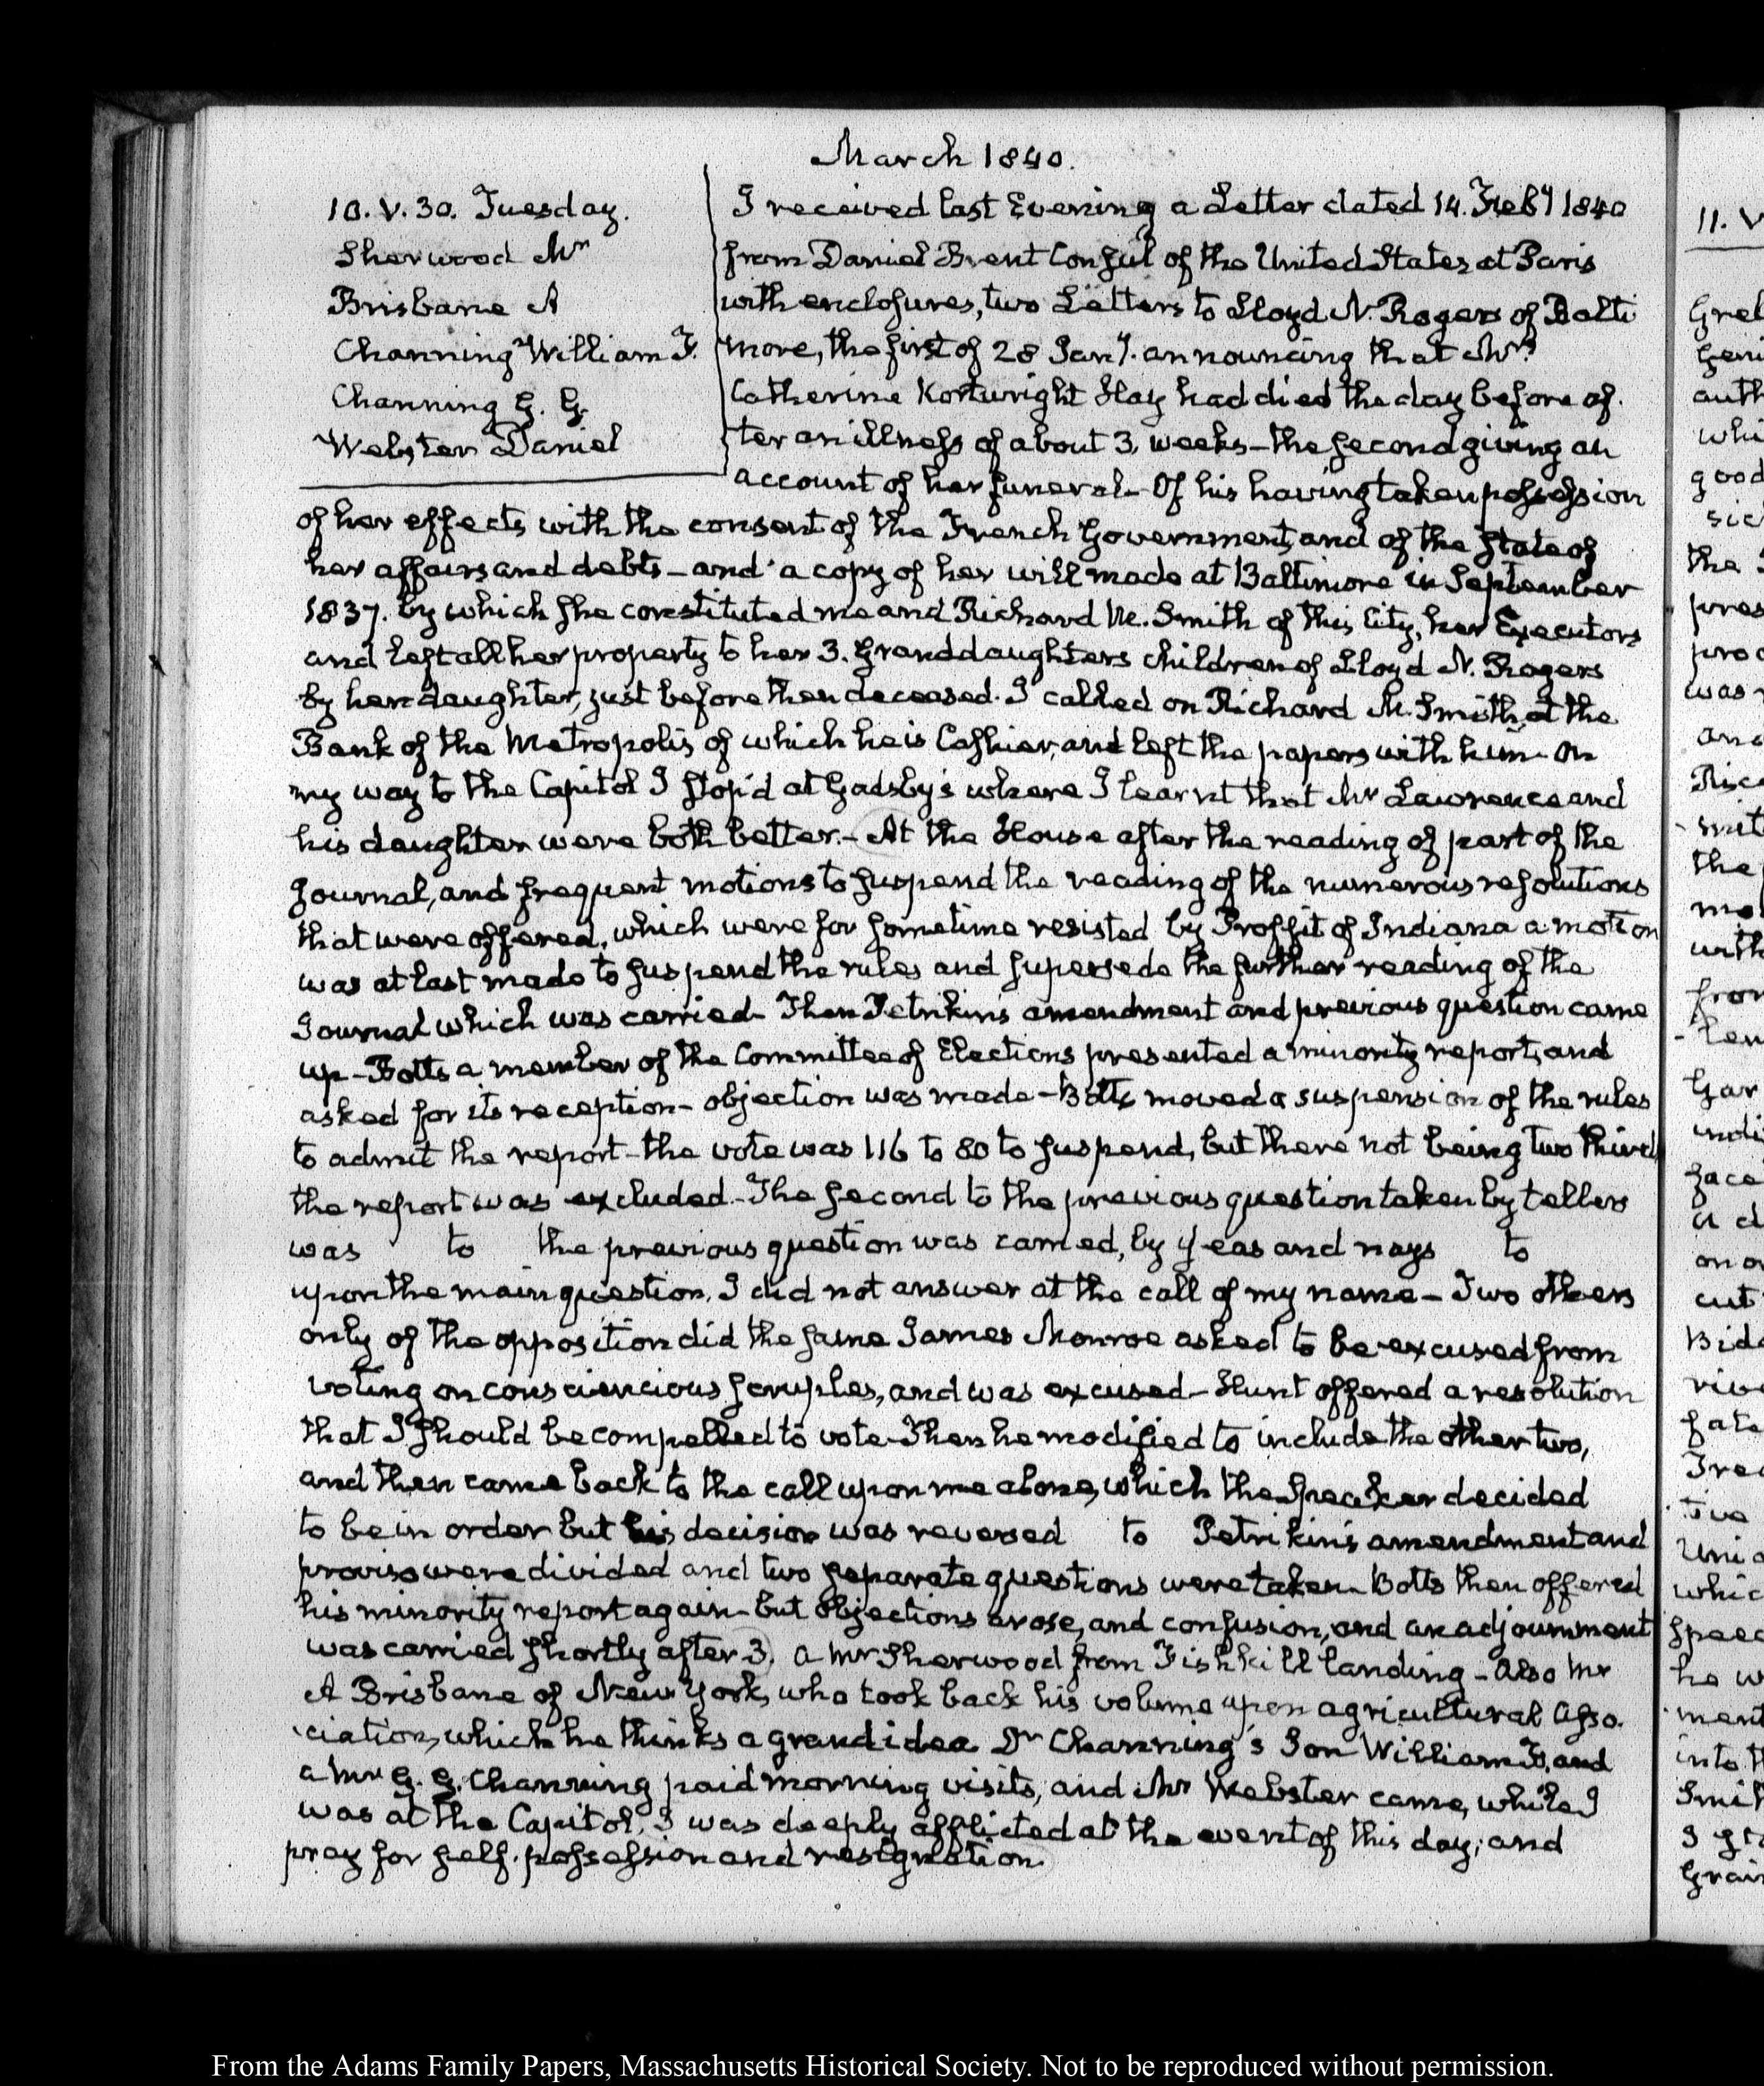 March 1840.
10. V. 30. Tuesday.
Sherwood Mr
Brisbane A
Channing William F.
Channing G. G.
Webster Daniel
I received last Evening a Letter dated 14. Feby 1840
from Daniel Brent Consul of the United States at Paris
with enclosures, two Letters to Lloyd N. Rogers of Balti
more, the first of 28 Jany. announcing that Mrs
Catherine Kortwright Hay had died the day before af.
ter an illness of about 3. weeks - the second giving an
account of her funeral - Of his having taken possession
of her effects with the consent of the French Government, and of the state of
her affairs and debts - and a copy of her will made at Baltimore in September
1837. by which she constituted me and Richard M. Smith of this City, her Executors
and left all her property to her 3. Granddaughters children of Lloyd N. Rogers
by her daughter, just before then deceased. I called on Richard M. Smith, at the
Bank of the Metropolis of which he is Cashier, and left the papers with him - On
my way to the Capitol I stop'd at Gadsby's where I learnt that Mr Lawrence and
his daughter were both better. - At the House after the reading of part of the
Journal, and frequent motions to suspend the reading of the numerous resolutions
that were offered, which were for sometime resisted by Proffit of Indiana a motion
was at last made to suspend the rules and supersede the further reading of the
Journal which was carried - Then Petrikin's amendment and previous question came
up - Botts a member of the Committee of Elections presented a minority report, and
asked for its reception - objection was made - Botts moved a suspension of the rules
to admit the report - the vote was 116 to 80 to suspend, but there not being two thirds
the report was excluded - The second to the previous question taken by tellers
was to the previous question was carried, by yeas and nays to
upon the main question, I did not answer at the call of my name - Two others
only of the opposition did the same James Monroe asked to be excused from
voting on consciencious scruples, and was excused - Hunt offered a resolution
that I should be compelled to vote - Then he modified to include the other two,
and then came back to the call upon me alone, which the Speaker decided
to be in order but his decision was reversed to Petrikin's amendment and
proviso were divided and two separate questions were taken - Botts then offered
his minority report again - but objections arose, and confusion, and an adjournment
was carried shortly after 3. a Mr Sherwood from Fishkill landing - Also Mr
A Brisbane of New York, who took back his volume upon agricultural Asso.
ciation, which he thinks a grand idea Dr Channing's Son William F, and
a Mr G. G. Channing paid morning visits, and Mr Webster came, while I
was at the Capitol. I was deeply afflicted at the event of this day; and
pray for self-possession and resignation.
11. V
From the Adams Family Papers, Massachusetts Historical Society. Not to be reproduced without permission.